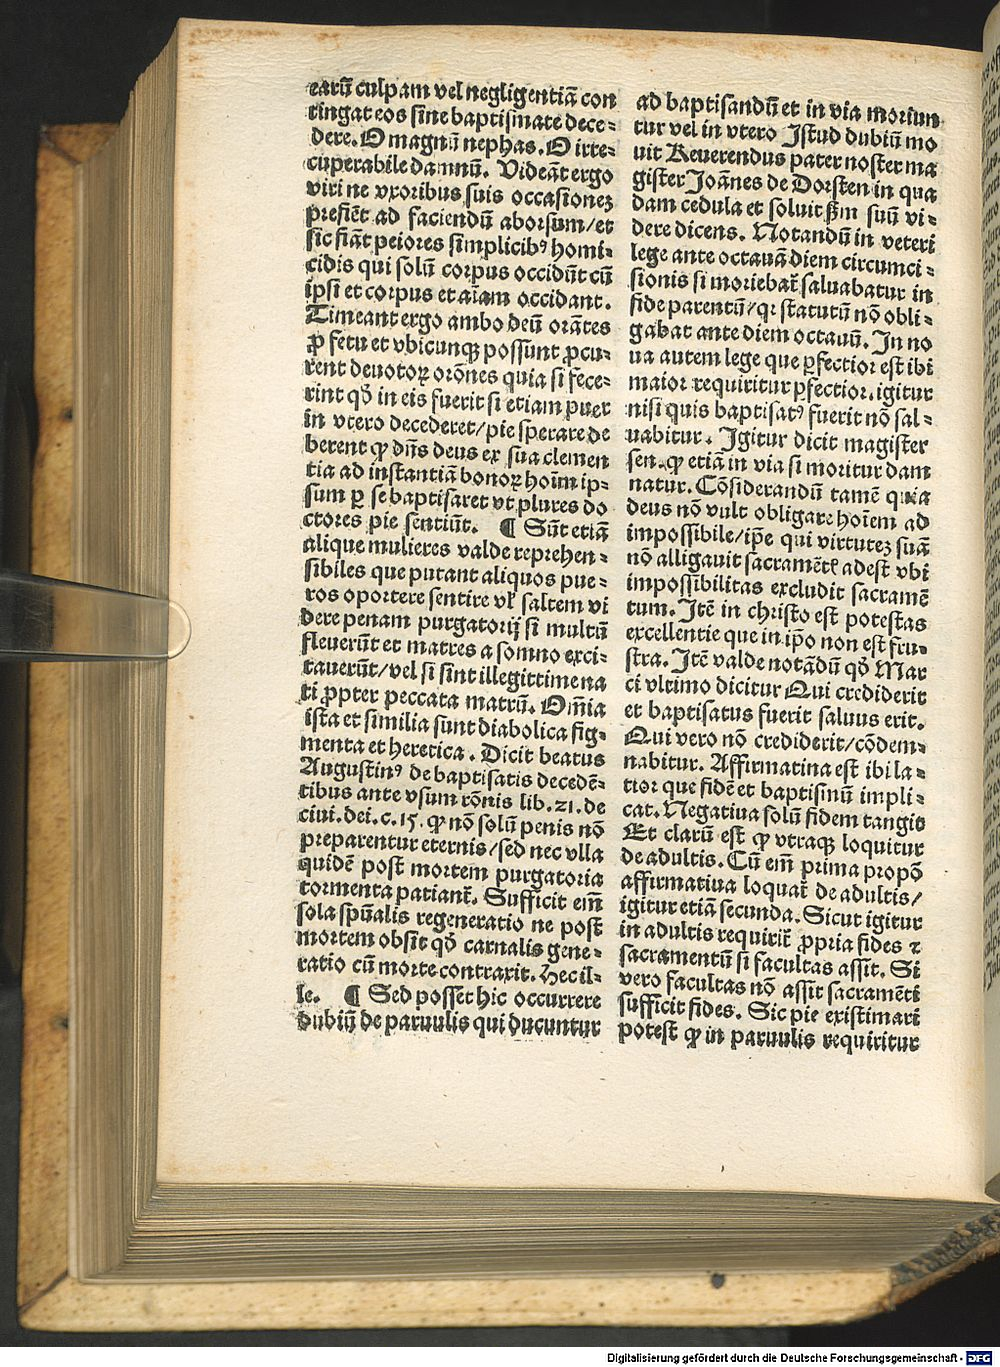 earū culpam vel negligentiā con
tingat eos sine baptismate dece⸗
dere. O magnū nephas. O irre⸗
cuperabile damnū. Videāt ergo
viri ne vxoribus suis occasioneꝫ
prestēt ad faciendū aborsum/et
sic fiāt peiores simplicibꝰ homi⸗
cidis qui solū corpus occidūt cū
ipsi et corpus et aīam occidant.
Timeant ergo ambo deū orātes
ꝓ fetu et vbicunqꝫ possunt ꝓcu⸗
rent deuotoꝝ orōnes quia si fece⸗
rint qđ in eis fuerit si etiam puer
in vtero decederet/pie sperare de
berent ꝙ dn̄s deus ex sua clemen
tia ad instantiā bonoꝝ hoīm ip⸗
sum ꝑ se baptisaret vt plures do
ctores pie sentiūt. ¶ Sūt etiā
alique mulieres valde reprehen⸗
sibiles que putant aliquos pue⸗
ros oportere sentire vl̓ saltem vi
dere penam purgatorij si multū
fleuerūt et matres a somno exci⸗
tauerūt/vel si sint illegittime na
ti ꝓpter peccata matrū. Om̄ia
ista et similia sunt diabolica fig⸗
menta et heretica. Dicit beatus
Augustinꝰ de baptisatis decedē⸗
tibus ante vsum rōnis lib. 21. de
ciui. dei. c. 15. ꝙ nō solū penis nō
preparentur eternis/sed nec vlla
quidē post mortem purgatoria
tormenta patiant᷑. Sufficit em̄
sola spūalis regeneratio ne post
mortem obsit qđ carnalis gene⸗
ratio cū morte contraxit. Hec il⸗
le. ¶ Sed posset hic occurrere
dubiū de paruulis qui ducuntur
ad baptisandū et in via moriun
tur vel in vtero Istud dubiū mo
uit Reuerendus pater noster ma
gister Joānes de Dorsten in qua
dam cedula et soluit ẜm suū vi⸗
dere dicens. Notandū in veteri
lege ante octauā diem circumci⸗
sionis si moriebat᷑ saluabatur in
fide parentū/qꝛ statutū nō obli⸗
gabat ante diem octauū. In no
ua autem lege que ꝑfectior est ibi
maior requiritur ꝑfectior. igitur
nisi quis baptisatꝰ fuerit nō sal⸗
uabitur. Igitur dicit magister
sen. ꝙ etiā in via si moritur dam
natur. Cōsiderandū tamē quia
deus nō vult obligare hoīem ad
impossibile/ip̄e qui virtuteꝫ suā
nō alligauit sacramētꝭ adest vbi
impossibilitas excludit sacramē
tum. Itē in christo est potestas
excellentie que in ip̄o non est fru⸗
stra. Itē valde notādū qđ Mar
ci vltimo dicitur Qui crediderit
et baptisatus fuerit saluus erit.
Qui vero nō crediderit/cōdem⸗
nabitur. Affirmatiua est ibi la⸗
tior que fidē et baptismū impli⸗
cat. Negatiua solū fidem tangit
Et clarū est ꝙ vtraqꝫ loquitur
de adultis. Cū em̄ prima propō
affirmatiua loquat᷑ de adultis/
igitur etiā secunda. Sicut igitur
in adultis requirit᷑ ꝓpria fides ⁊
sacramentū si facultas assit. Si
vero facultas nō assit sacramēti
sufficit fides. Sic pie existimari
potest ꝙ in paruulis requiritur
Digitalisierung gefördert durch die Deutsche Forschungsgemeinschaft - DFG